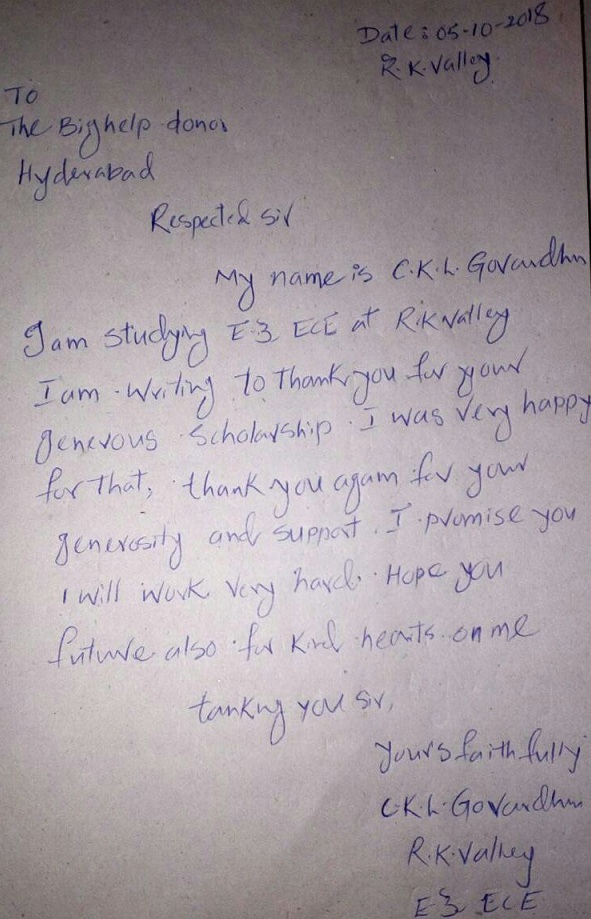 Date: 05-10-2018
R.K.Valley
To
The Bighelp donor
Hyderabad
Respected sir
My name is C.K.L. Govardhn
I am studying E-3 ECE at R.K Valley
I am writing to thank you for your
generous scholarship. I was very happy
for that, thank you again for your
generosity and support. I promise you
I will work very hard. Hope you
future also for kind hearts on me
tanking you sir,
yours faithfully
C.K.L. Govardhn
R.K.Valley
E-3 ECE